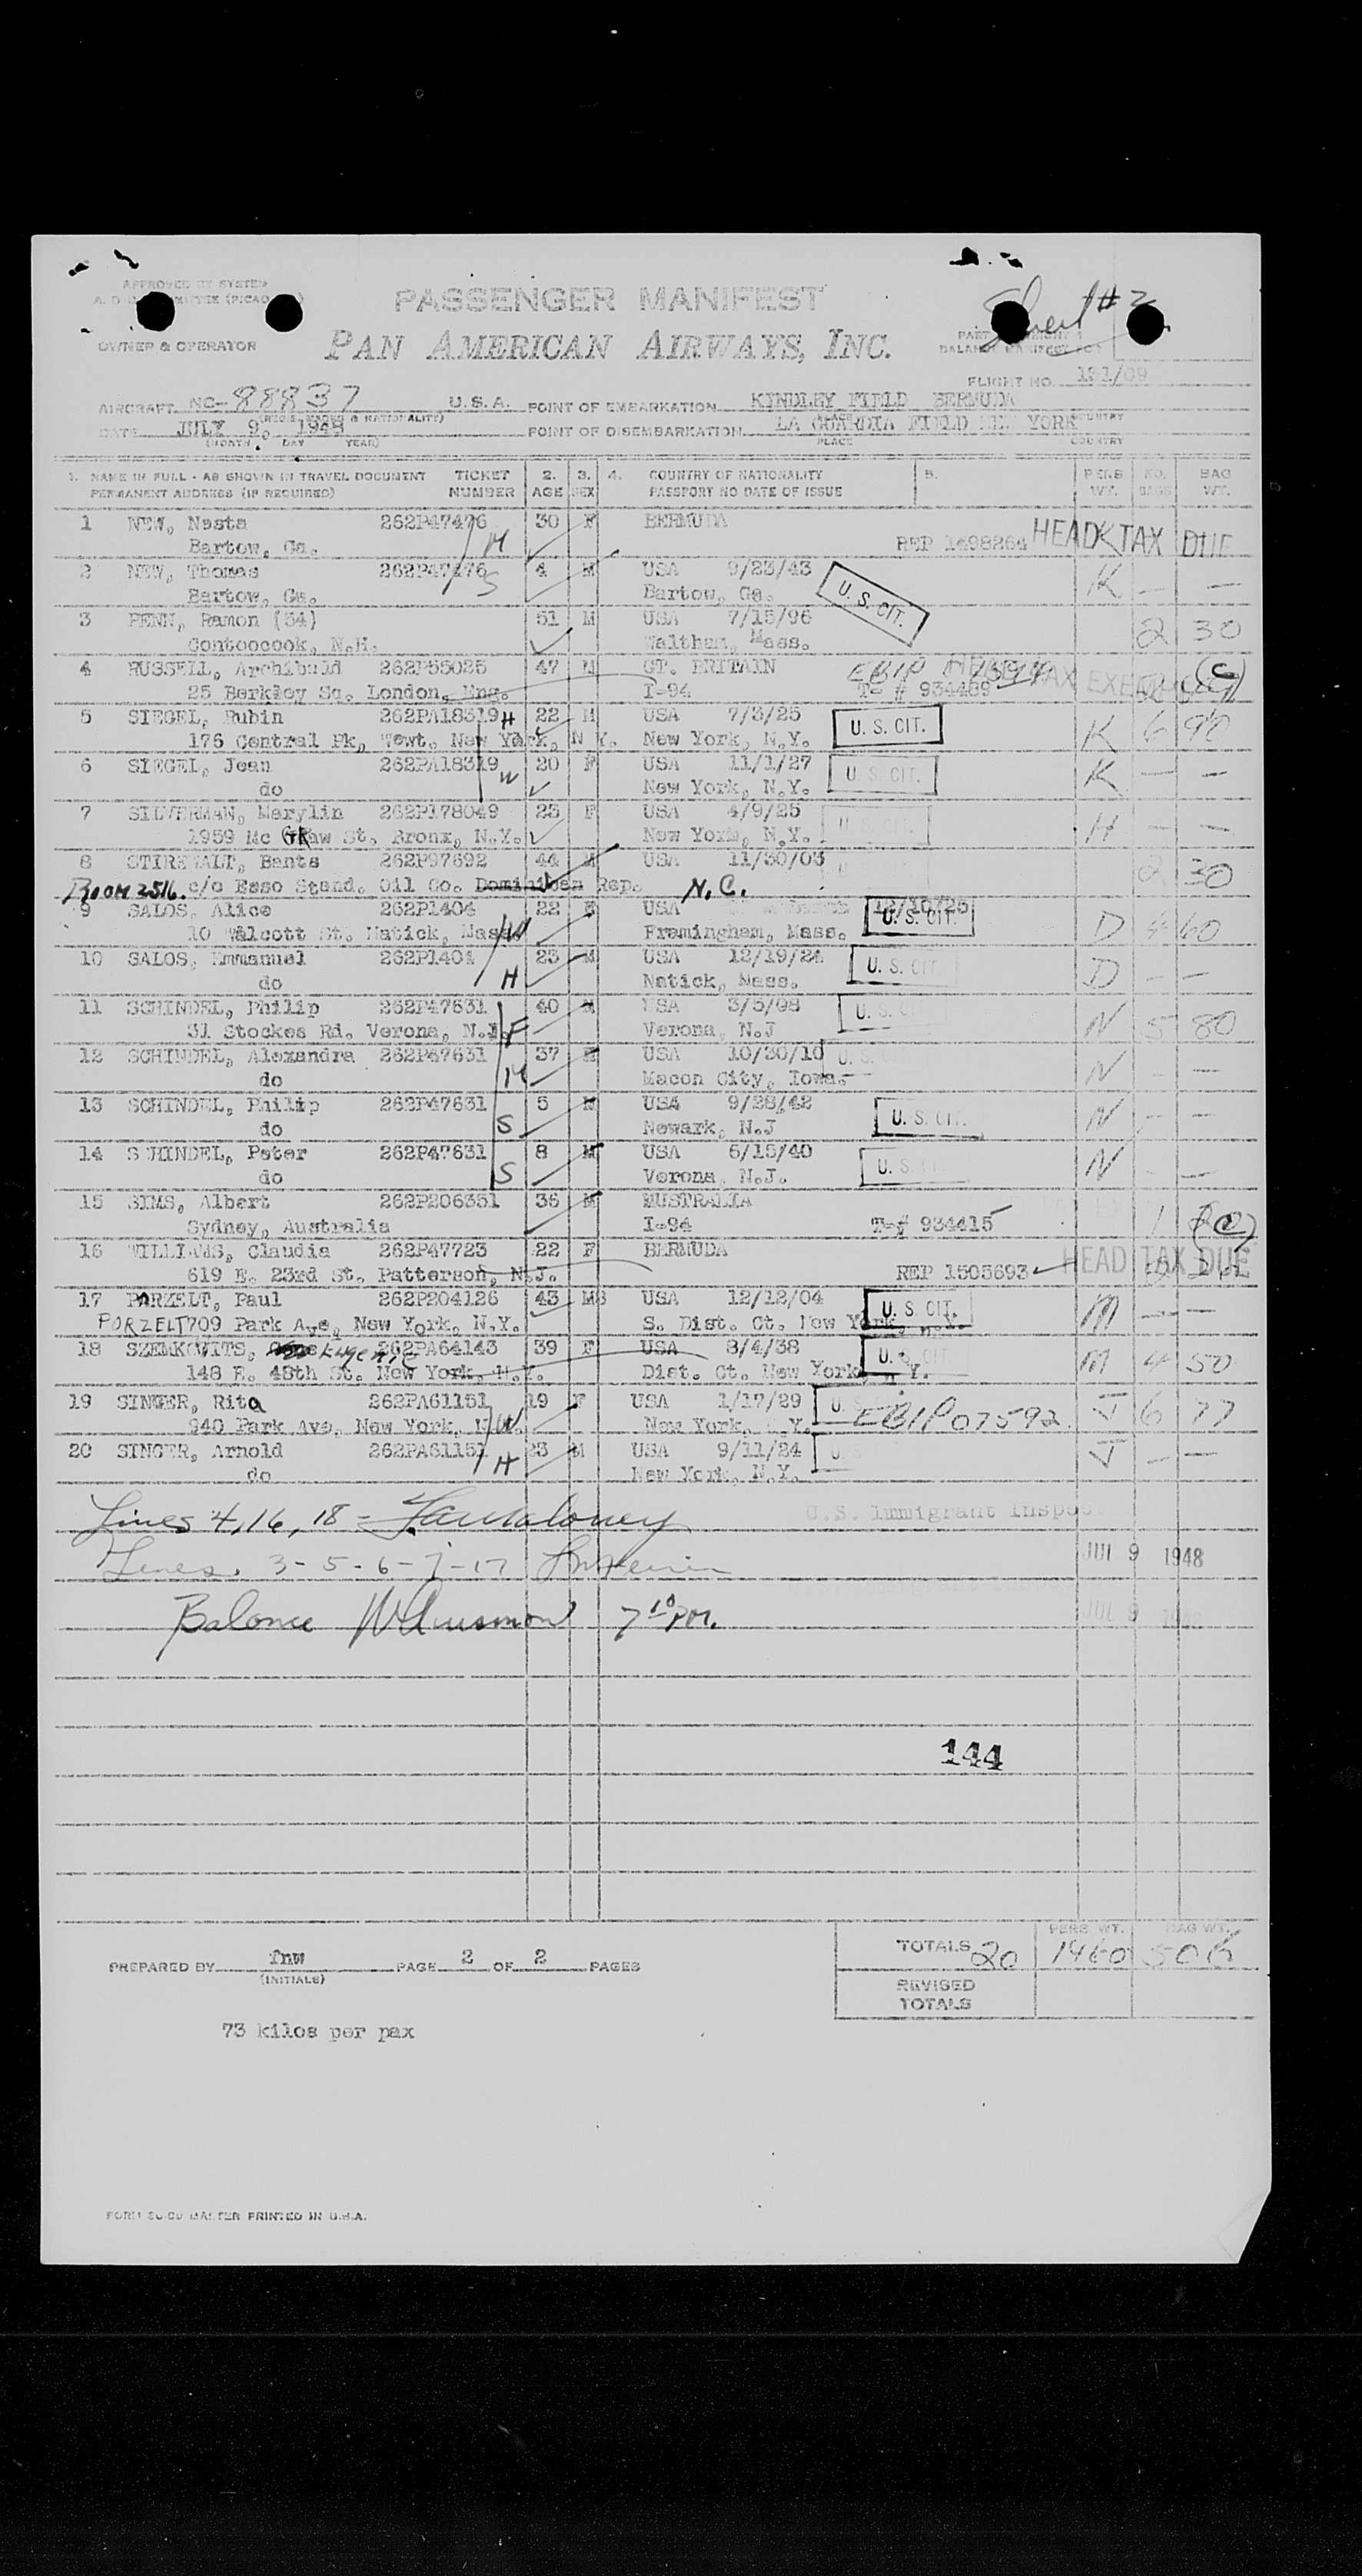 APPROVED BY SYSTEM
Sheet #2
PASSENGER MANIFEST
OWNER & OPERATOR
PAN AMERICAN AIRWAYS, INC.
FLIGHT NO. 131/09
AIRCRAFT NC-88837 U.S.A. POINT OF EMBARKATION KINDLEY FIELD BERMUDA
DATE JULY 9, 1948 POINT OF DISEMBARKATION LA GUARDIA FIELD NEW YORK
(MONTH DAY YEAR) PLACE COUNTRY
1. NAME IN FULL - AS SHOWN IN TRAVEL DOCUMENT TICKET 2. 3. 4. COUNTRY OF NATIONALITY 5. PERS NO. BAG
PERMANENT ADDRESS (IF REQUIRED) NUMBER AGE SEX PASSPORT NO DATE OF ISSUE WT. BAGS WT.
1 NEW, Nesta 262P47476 M 30 F BERMUDA
Bartow, Ga. REP 1498264 HEAD TAX DUE
2 NEW, Thomas 262P47476 S 4 M USA 9/23/43 K — —
Bartow, Ga. Bartow, Ga. U. S. CIT.
3 PENN, Ramon (54) 51 M USA 7/15/96 2 30
Contoocook, N.H. Waltham, Mass.
4 RUSSELL, Archibald 262P55025 47 M GT. BRITAIN HEAD TAX EXEMPT (C)
25 Berkley Sq. London, Eng. I-94 T-# 934489
5 SIEGEL, Rubin 262PA18319 H 22 M USA 7/3/25 U. S. CIT. K 6 90
176 Central Pk, West. New York, N Y. New York, N.Y.
6 SIEGEL, Jean 262PA18319 W 20 F USA 11/1/27 U. S. CIT. K — —
do New York, N.Y.
7 SILVERMAN, Marylin 262P178049 23 F USA 4/9/25 U. S. CIT. H — —
1959 Mc GRaw St. Bronx, N.Y. New York, N.Y.
8 STIREWALT, Bants 262P97692 44 M USA 11/30/03 2 30
Room 2516. c/o Esso Stand. Oil Co. Dominican Rep. N.C.
9 SALOS, Alice 262P1404 W 22 F USA 12/10/25 U. S. CIT. D 4 60
10 Walcott St. Natick, Mass. Framingham, Mass.
10 SALOS, Emmanuel 262P1404 H 23 M USA 12/19/24 U. S. CIT. D — —
do Natick, Mass.
11 SCHINDEL, Philip 262P47631 F 40 M USA 3/5/08 U. S. CIT. N 5 80
31 Stockes Rd. Verona, N.J. Verona, N.J
12 SCHINDEL, Alexandra 262P47631 M 37 F USA 10/30/10 U. S. N — —
do Macon City, Iowa.
13 SCHINDEL, Philip 262P47631 S 5 M USA 9/28/42 U. S. CIT. N — —
do Newark, N.J
14 SCHINDEL, Peter 262P47631 S 8 M USA 6/15/40 U. S. CIT. N — —
do Verona, N.J.
15 SIMS, Albert 262P206351 36 M AUSTRALIA 1 20 (C)
Sydney, Australia I-94 T-# 934415
16 WILLIAMS, Claudia 262P47723 22 F BERMUDA
619 E. 23rd St. Patterson, N.J. REP 1505693 HEAD TAX DUE
17 PARZELT, Paul 262P204126 43 M USA 12/12/04 U. S. CIT. M — —
PORZELT 709 Park Ave, New York, N.Y. S. Dist. Ct. New York, N.Y.
18 SZEMKOWITS, Eugenie 262PA64143 39 F USA 8/4/38 U. S. CIT. M 4 50
148 E. 48th St. New York. N.Y. Dist. Ct. New York, N.Y.
19 SINGER, Rita 262PA61151 W 19 F USA 1/17/29 EBIP 07592 J 6 77
940 Park Ave, New York, N.Y. New York, N.Y.
20 SINGER, Arnold 262PA61151 H 23 M USA 9/11/24 J — —
do New York, N.Y.
Lines 4, 16, 18 - Maloney
U.S. Immigrant Inspector
Lines. 3-5-6-7-17
JUL 9 1948
Balance 7 10 PM.
JUL 9 1948
144
PERS WT. BAG WT.
TOTALS 20 1460 506
PREPARED BY fnw PAGE 2 OF 2 PAGES
(INITIALS)
REVISED
TOTALS
73 kilos per pax
PRINTED IN U.S.A.